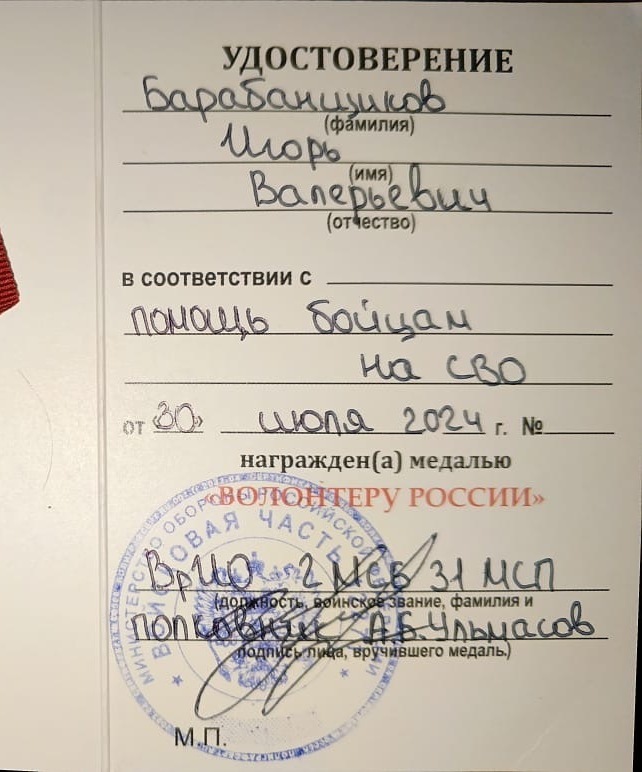 УДОСТОВЕРЕНИЕ
Барабанщиков
(фамилия)
Игорь
(имя)
Валерьевич
(отчество)
в соответствии с
помощь бойцам
на СВО
от «30» июля 2024 г. №
награжден(а) медалью
«ВОЛОНТЕРУ РОССИИ»
ВрИО 2 МСБ 31 МСП
(должность, воинское звание, фамилия и
полковник А.Б.Ульмасов
подпись лица, вручившего медаль.)
М.П.
МИНИСТЕРСТВО ОБОРОНЫ РОССИЙСКОЙ
ВОЙСКОВАЯ ЧАСТЬ